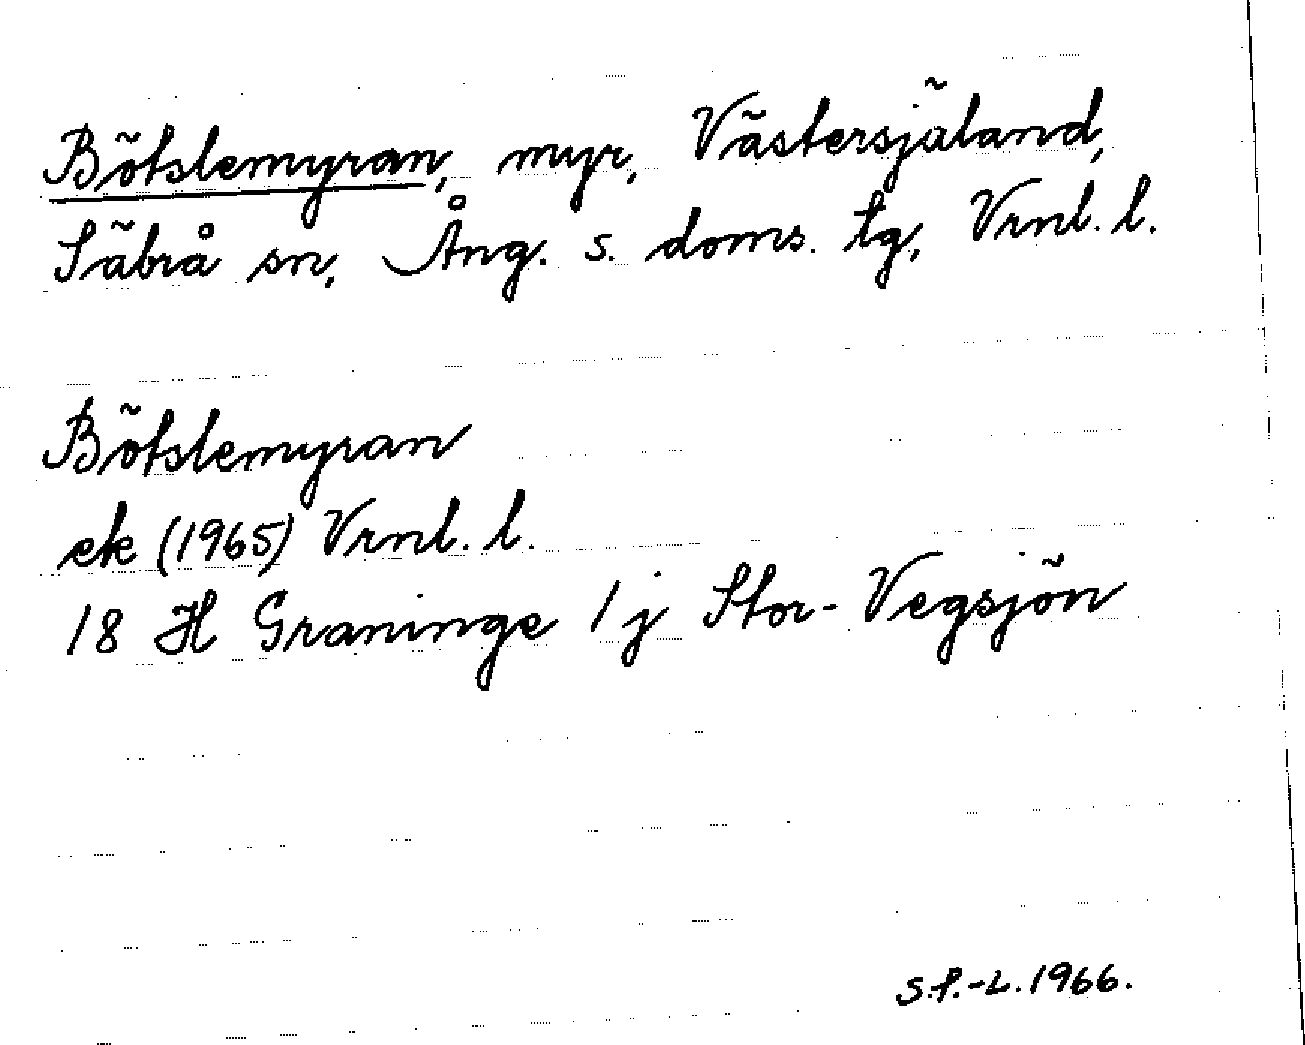 Bötslemyran, myr, Västersjäland,
Säbrå sn, Ång. s. doms. tg, Vrnl. l.
Bötslemyran
ek (1965) Vrnl. l.
18 H Graninge 1 j Stor-Vegsjön
S.P.-L. 1966.